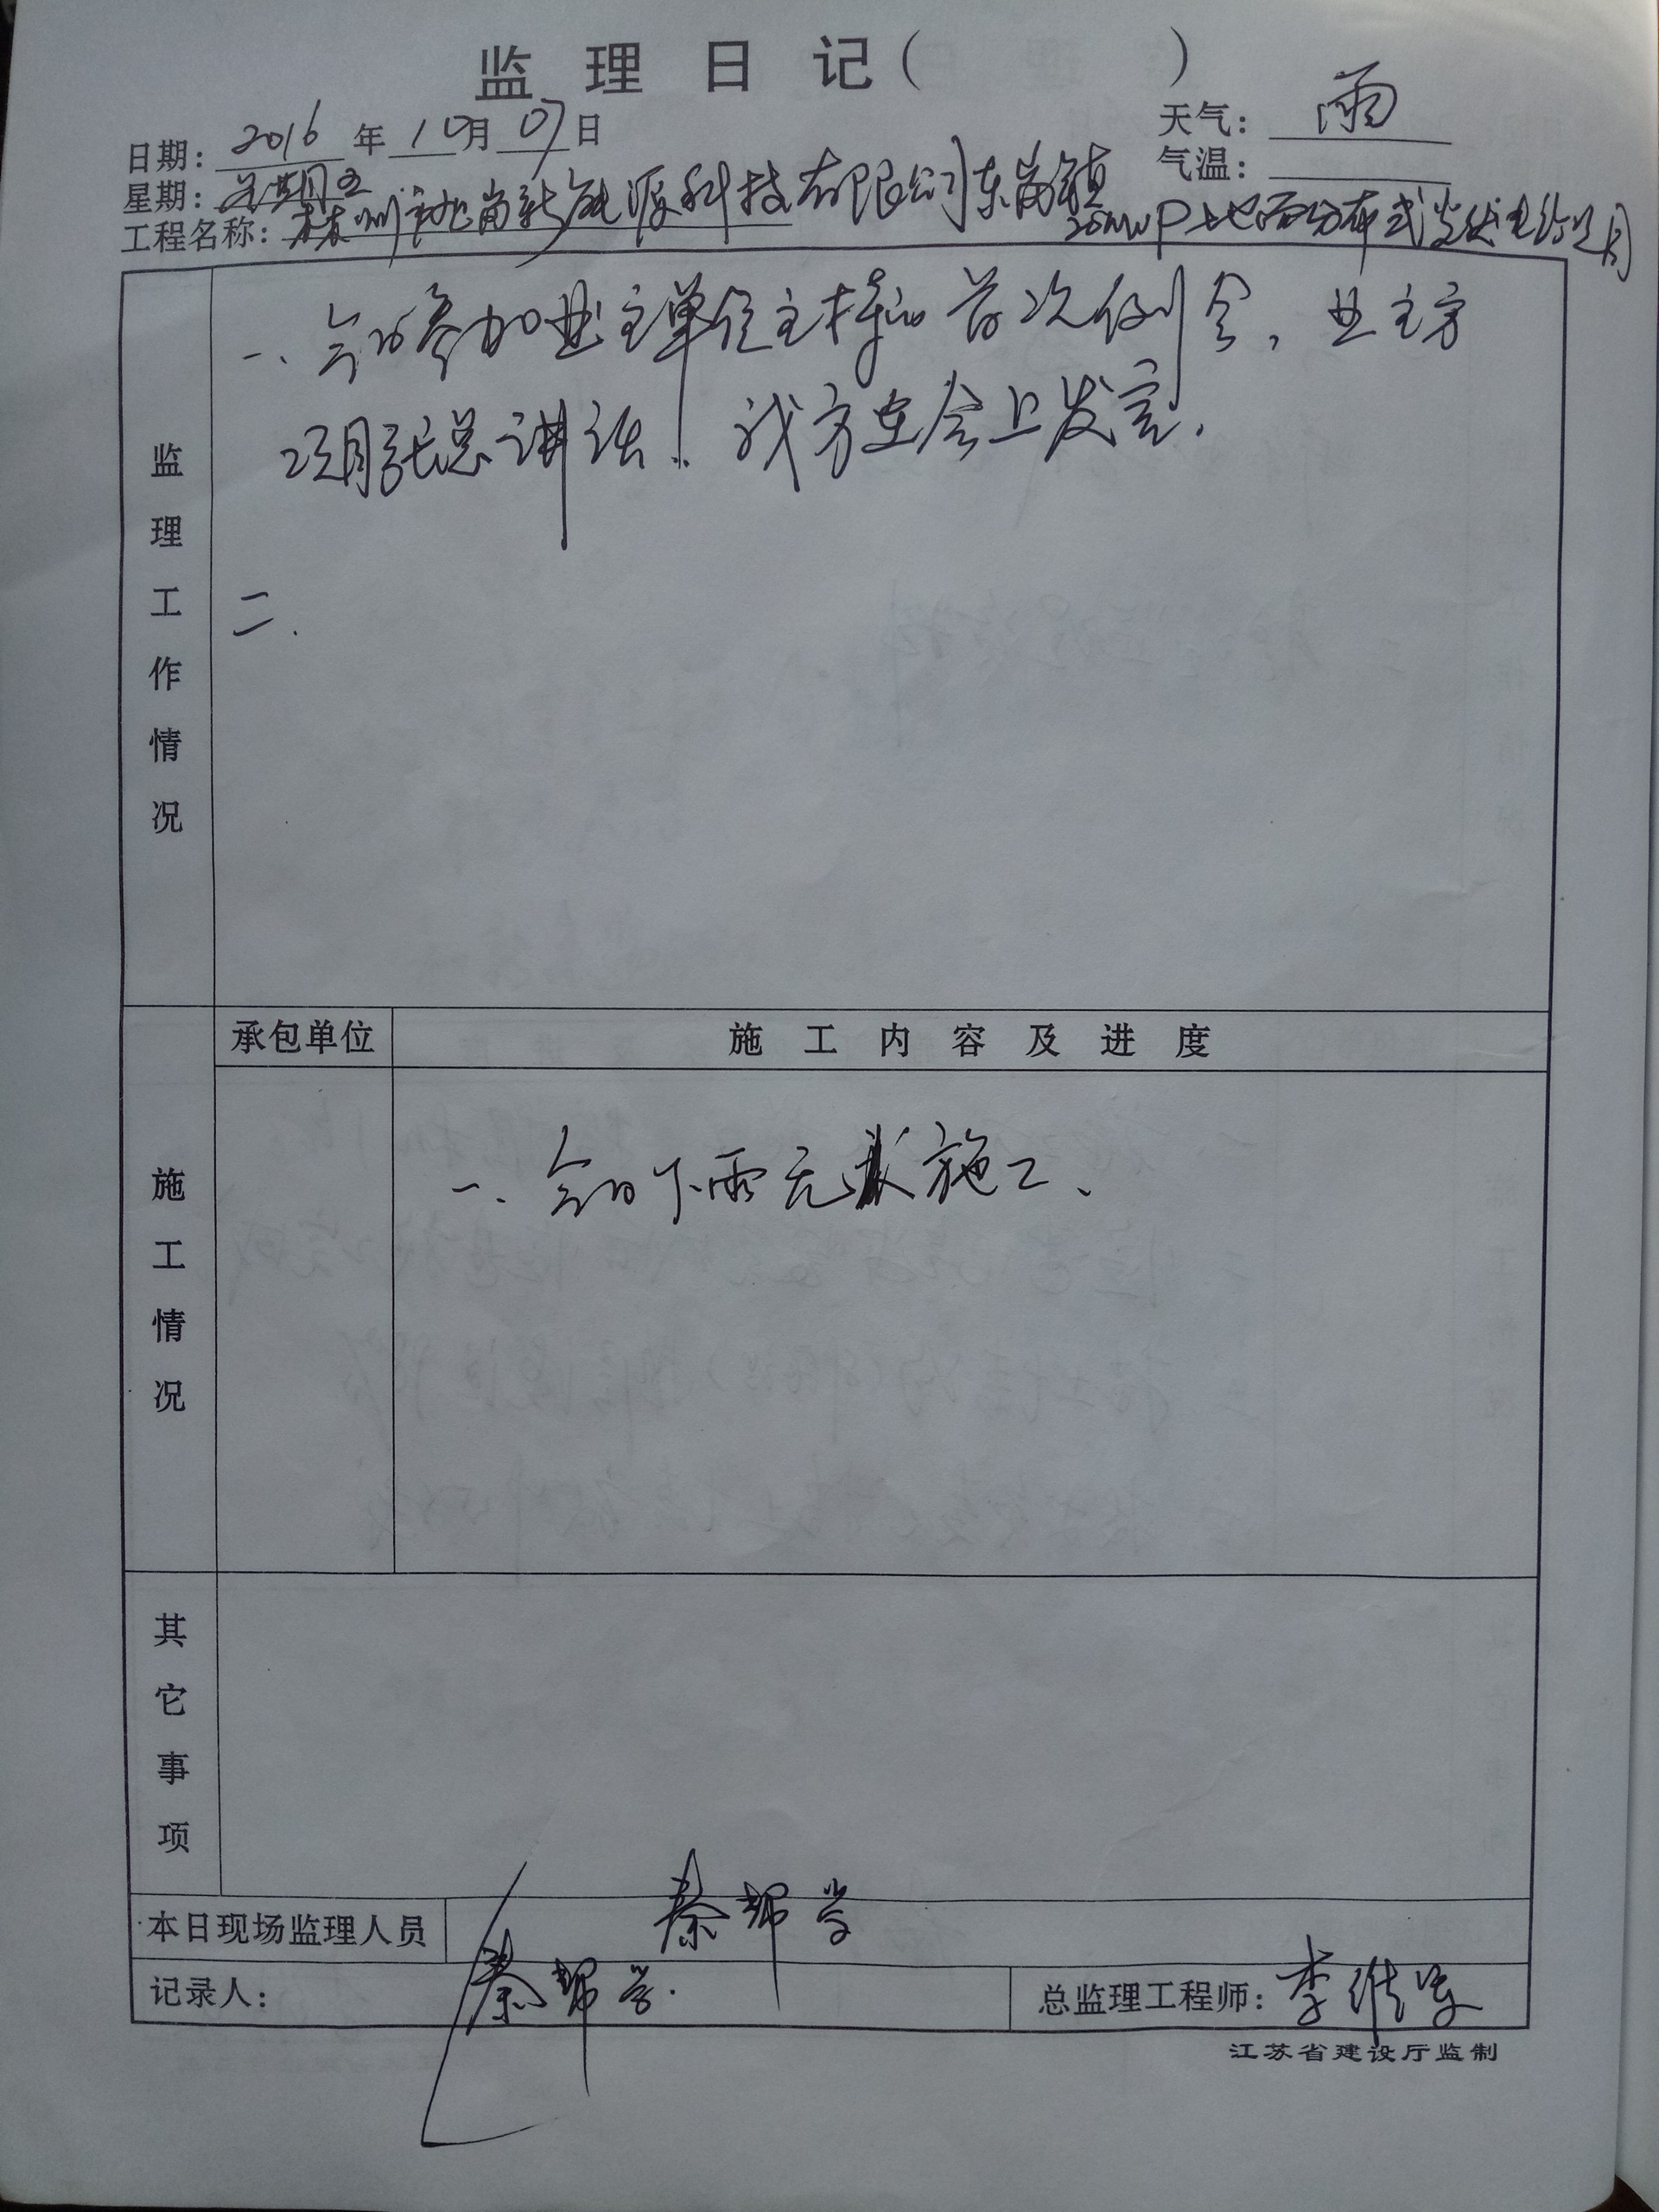 监理日记( )
日期: 2016 年 10 月 07 日 天气: 雨
星期: 星期五 气温:
工程名称: 新能源科技有限公司东岗镇
20MWP地面分布式光伏电站项目
监理工作情况
一、今日参加业主单位主持的首次例会，业主方
项目张总讲话！我方在会上发言.
二.
承包单位 施工内容及进度
施工情况
一、今日下雨无 施工、
其它事项
本日现场监理人员 秦邦学
记录人: 秦邦学. 总监理工程师: 李维
江苏省建设厅监制